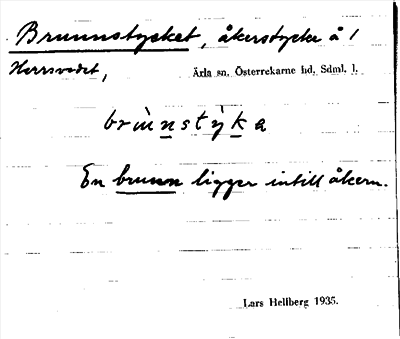 Brunnstycket, åkerstycke å /
Herrsvedet,
Ärla sn. Österrekarne hd, Sdml. l.
brùnstỳka
En brunn ligger intill åkern.
Lars Hellberg 1935.